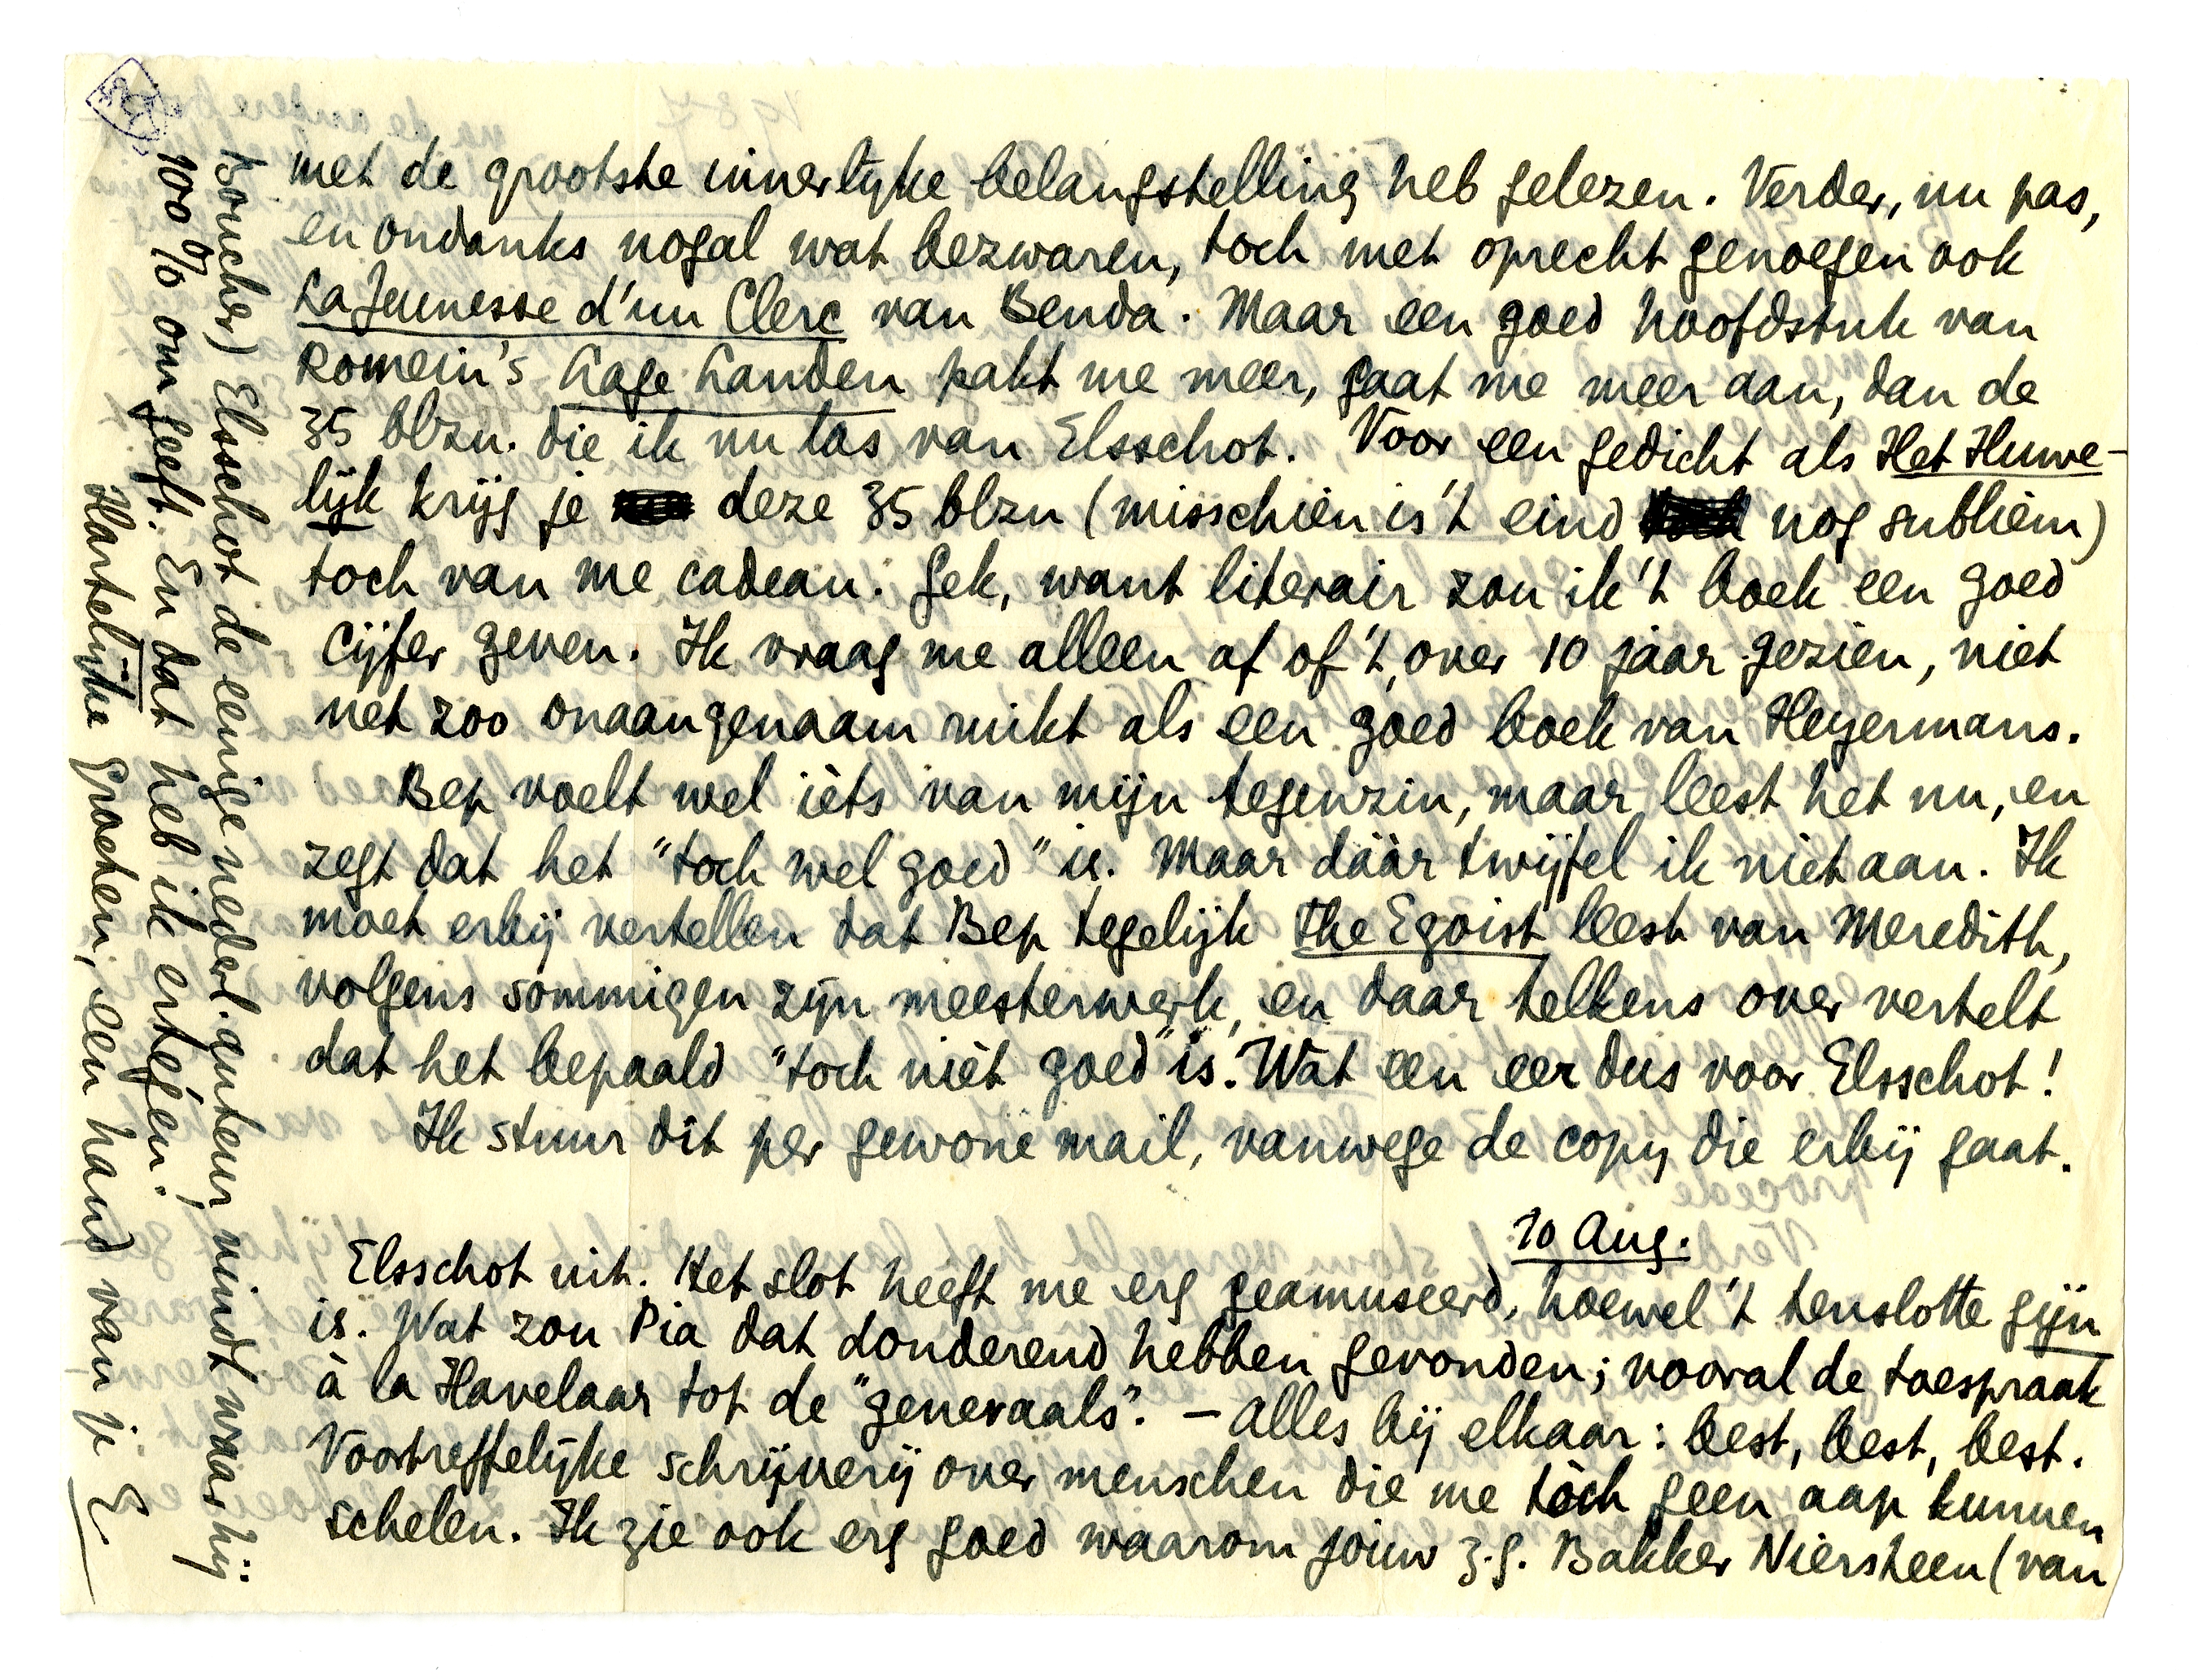 met de grootste innerlijke belangstelling heb gelezen. Verder, nu pas,
en ondanks nogal wat bezwaren, toch met oprecht genoegen ook
La Jeunesse d'un Clerc van Benda. Maar een goed hoofdstuk van
Romein's Lage Landen pakt me meer, gaat me meer aan, dan de
35 blzn. die ik nu las van Elsschot. Voor een gedicht als Het Huwe-
lijk krijg je deze 35 blzn (misschien is 't eind nog subliem)
toch van me cadeau. Gek, want literair zou ik 't boek een goed
cijfer geven. Ik vraag me alleen af of 't, over 10 jaar gezien, niet
net zoo onaangenaam ruikt als een goed boek van Heyermans.
Bep voelt wel ièts van mijn tegenzin, maar leest het nu, en
zegt dat het "toch wel goed" is. Maar dáár twijfel ik niet aan. Ik
moet erbij vertellen dat Bep tegelijk The Egoist leest van Meredith,
volgens sommigen zijn meesterwerk, en daar telkens over vertelt
dat het bepaald "toch nièt goed" is. Wat een eer dus voor Elsschot!
Ik stuur dit per gewone mail, vanwege de copy die erbij gaat.
10 Aug.
Elsschot uit. Het slot heeft me erg geamuseerd, hoewel 't tenslotte gijn
is. Wat zou Pia dat donderend hebben gevonden; vooral de toespraak
à la Havelaar tot de "generaals". – Alles bij elkaar: best, best, best.
Voortreffelijke schrijverij over menschen die me tòch geen aap kunnen
schelen. Ik zie ook erg goed waarom jouw z.g. Bakker Niersteen (van
Boucher) Elsschot de eenige nederl. auteur vindt waar hij
100% om geeft. En dat heb ik ertegen.
Hartelijke groeten, een hand van je E.